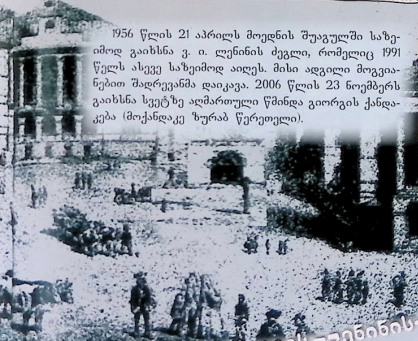 1956 წლის 21 აპრილს მოედნის შუაგულში საზე-
იმოდ გაიხსნა ვ. ი. ლენინის ძეგლი, რომელიც 1991
წელს ასევე საზეიმოდ აიღეს. მისი ადგილი მოგვია-
ნებით შადრევანმა დაიკავა. 2006 წლის 23 ნოემბერს
გაიხსნა სვეტზე აღმართული წმინდა გიორგის ქანდა-
კება (მოქანდაკე ზურაბ წერეთელი).